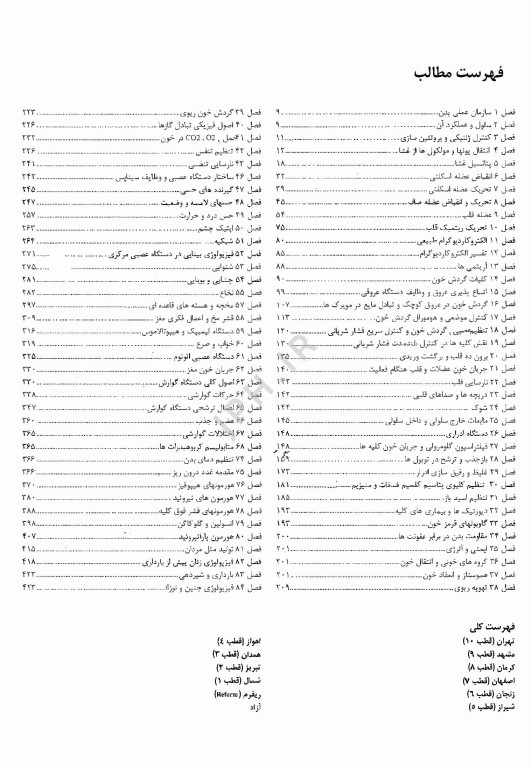 فهرست مطالب
فصل ۱ سازمان عملی بدن ۹
فصل ۲ سلول و عملکرد آن ۹
فصل ۳ کنترل ژنتیکی و پروتئین سازی ۱۱
فصل ۴ انتقال یونها و مولکول ها از غشا ۱۲
فصل ۵ پتانسیل غشا ۱۸
فصل ۶ انقباض عضله اسکلتی ۳۲
فصل ۷ تحریک عضله اسکلتی ۳۹
فصل ۸ تحریک و انقباض عضله صاف ۴۵
فصل ۹ عضله قلب ۵۴
فصل ۱۰ تحریک ریتمیک قلب ۷۵
فصل ۱۱ الکتروکاردیوگرام طبیعی ۸۰
فصل ۱۲ تفسیر الکتروکاردیوگرام ۸۵
فصل ۱۳ آریتمی ها ۸۸
فصل ۱۴ کلیات گردش خون ۹۰
فصل ۱۵ اتساع پذیری عروق و وظایف دستگاه عروقی ۹۹
فصل ۱۶ گردش خون در عروق کوچک و تبادل مایع در مویرگ ها ۱۰۷
فصل ۱۷ کنترل موضعی و هومورال گردش خون ۱۱۳
فصل ۱۸ تنظیم عصبی گردش خون و کنترل سریع فشار شریانی ۱۲۰
فصل ۱۹ نقش کلیه ها در کنترل بلندمدت فشار شریانی ۱۳۰
فصل ۲۰ برون ده قلب و برگشت وریدی ۱۳۵
فصل ۲۱ جریان خون عضلات و قلب هنگام فعالیت ۱۴۰
فصل ۲۲ نارسایی قلب ۱۴۲
فصل ۲۳ دریچه ها و صداهای قلبی ۱۴۲
فصل ۲۴ شوک ۱۴۴
فصل ۲۵ مایعات خارج سلولی و داخل سلولی ۱۴۵
فصل ۲۶ دستگاه ادراری ۱۴۸
فصل ۲۷ فیلتراسیون گلومرولی و جریان خون کلیه ها ۱۴۸
فصل ۲۸ بازجذب و ترشح در توبول ها ۱۵۹
فصل ۲۹ غلیظ و رقیق سازی ادرار ۱۷۳
فصل ۳۰ تنظیم کلیوی پتاسیم کلسیم فسفات و منیزیم ۱۸۱
فصل ۳۱ تنظیم اسید باز ۱۸۵
فصل ۳۲ دیورتیک ها و بیماری های کلیه ۱۹۳
فصل ۳۳ گلبولهای قرمز خون ۱۹۳
فصل ۳۴ مقاومت بدن در برابر عفونت ها ۲۰۰
فصل ۳۵ ایمنی و آلرژی ۲۰۱
فصل ۳۶ گروه های خونی و انتقال خون ۲۰۱
فصل ۳۷ هموستاز و انعقاد خون ۲۰۱
فصل ۳۸ تهویه ریوی ۲۰۹
فصل ۳۹ گردش خون ریوی ۲۲۳
فصل ۴۰ اصول فیزیکی تبادل گازها ۲۲۶
فصل ۴۱ حمل O2 , CO2 در خون ۲۳۲
فصل ۴۲ تنظیم تنفس ۲۳۶
فصل ۴۳ نارسایی تنفسی ۲۴۱
فصل ۴۶ ساختار دستگاه عصبی و وظایف سیناپس ۲۴۲
فصل ۴۷ گیرنده های حسی ۲۴۵
فصل ۴۸ حسهای لامسه و وضعیت ۲۴۷
فصل ۴۹ حس درد و حرارت ۲۵۷
فصل ۵۰ اپتیک چشم ۲۶۳
فصل ۵۱ شبکیه ۲۶۴
فصل ۵۲ فیزیولوژی بینایی در دستگاه عصبی مرکزی ۲۷۱
فصل ۵۳ شنوایی ۲۷۵
فصل ۵۴ چشایی و بویایی ۲۸۱
فصل ۵۵ نخاع ۲۸۲
فصل ۵۷ مخچه و هسته های قاعده ای ۲۹۷
فصل ۵۸ قشر مخ و اعمال فکری مغز ۳۰۹
فصل ۵۹ دستگاه لیمبیک و هیپوتالاموس ۳۱۶
فصل ۶۰ خواب و صرع ۳۱۹
فصل ۶۱ دستگاه عصبی اتونوم ۳۲۵
فصل ۶۲ جریان خون مغز ۳۳۰
فصل ۶۳ اصول کلی دستگاه گوارش ۳۳۰
فصل ۶۴ حرکات گوارشی ۳۳۸
فصل ۶۵ اعمال ترشحی دستگاه گوارش ۳۴۷
فصل ۶۶ هضم و جذب ۳۶۰
فصل ۶۷ اختلالات گوارشی ۳۶۵
فصل ۶۸ متابولیسم کربوهیدرات ها ۳۶۵
فصل ۷۴ تنظیم دمای بدن ۳۶۶
فصل ۷۵ مقدمه غدد درون ریز ۳۶۶
فصل ۷۶ هورمونهای هیپوفیز ۳۷۰
فصل ۷۷ هورمون های تیروئید ۳۸۰
فصل ۷۸ هورمونهای قشر فوق کلیه ۳۸۸
فصل ۷۹ انسولین و گلوکاگن ۳۹۸
فصل ۸۰ هورمون پاراتیروئید ۴۰۷
فصل ۸۱ تولید مثل مردان ۴۱۵
فصل ۸۲ فیزیولوژی زنان پیش از بارداری ۴۱۸
فصل ۸۳ بارداری و شیردهی ۴۲۳
فصل ۸۴ فیزیولوژی جنین و نوزاد ۴۲۳
فهرست کلی
تهران (قطب ۱۰)
مشهد (قطب ۹)
کرمان (قطب ۸)
اصفهان (قطب ۷)
زنجان (قطب ۶)
شیراز (قطب ۵)
اهواز (قطب ٤)
همدان (قطب ۳)
تبریز (قطب ۲)
شمال (قطب ۱)
ریفرم (Reform)
آزاد